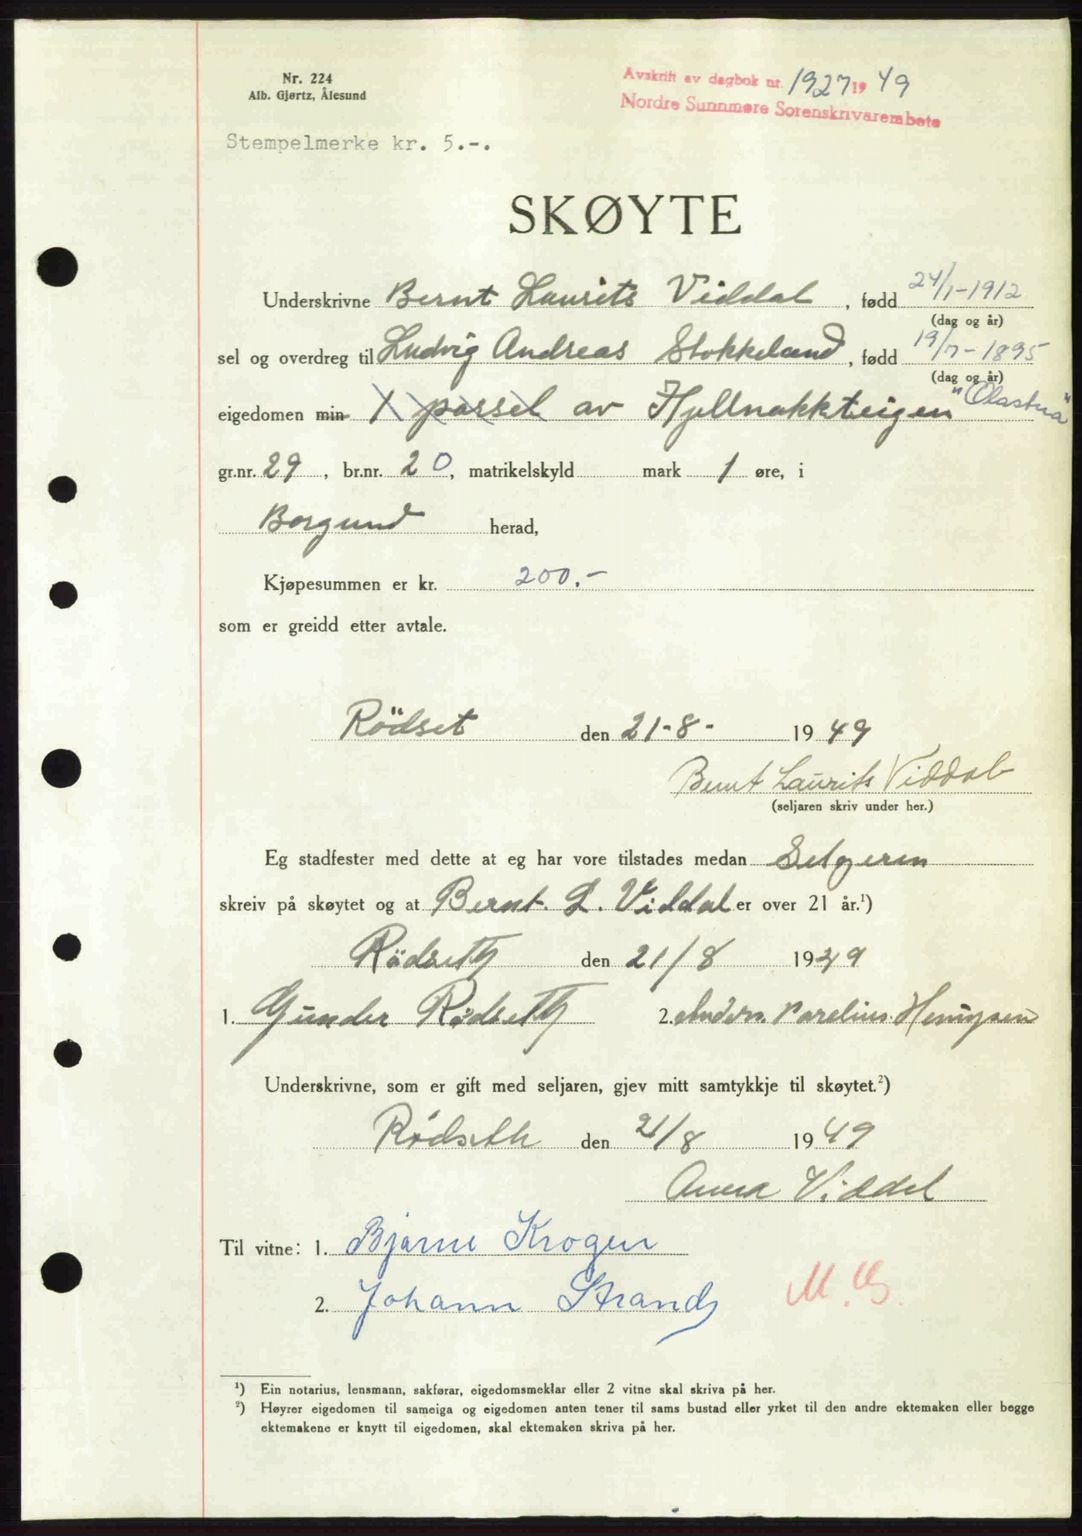 Nr. 224
Alb. Gjørtz, Ålesund
Avskrift av dagbok nr. 1927 1949
Nordre Sunnmøre Sorenskrivarembete
Stempelmerke kr. 5.-.
SKØYTE
Underskrivne Bernt Laurits Viddal, fødd 24/1-1912
(dag og år)
sel og overdreg til Ludvig Andreas Stokkeland, fødd 19/7-1895
(dag og år)
eigedomen min 1 parsel av Hjellnakkteigen "Olastua"
gr.nr. 29, br.nr. 20, matrikelskyld mark 1 øre, i
Borgund herad,
Kjøpesummen er kr. 200.-
som er greidd etter avtale.
Rödset den 21-8- 1949
Bernt Laurits Viddal
(seljaren skriv under her.)
Eg stadfester med dette at eg har vore tilstades medan Selgeren
skreiv på skøytet og at Bernt. L. Viddal er over 21 år.¹)
Rödseth den 21/8 1949
1. Gunder Rødseth 2. Anders. Parelius. Henrysen
Underskrivne, som er gift med seljaren, gjev mitt samtykkje til skøytet.²)
Rødseth den 21/8 1949
Anna Viddal
Til vitne: 1. Bjarne Krogen
2. Johann Strand
M.G.
¹) Ein notarius, lensmann, sakførar, eigedomsmeklar eller 2 vitne skal skriva på her.
²) Høyrer eigedomen til sameiga og eigedomen anten tener til sams bustad eller yrket til den andre ektemaken eller begge
ektemakene er knytt til eigedomen, skal ektemaken skriva på her.